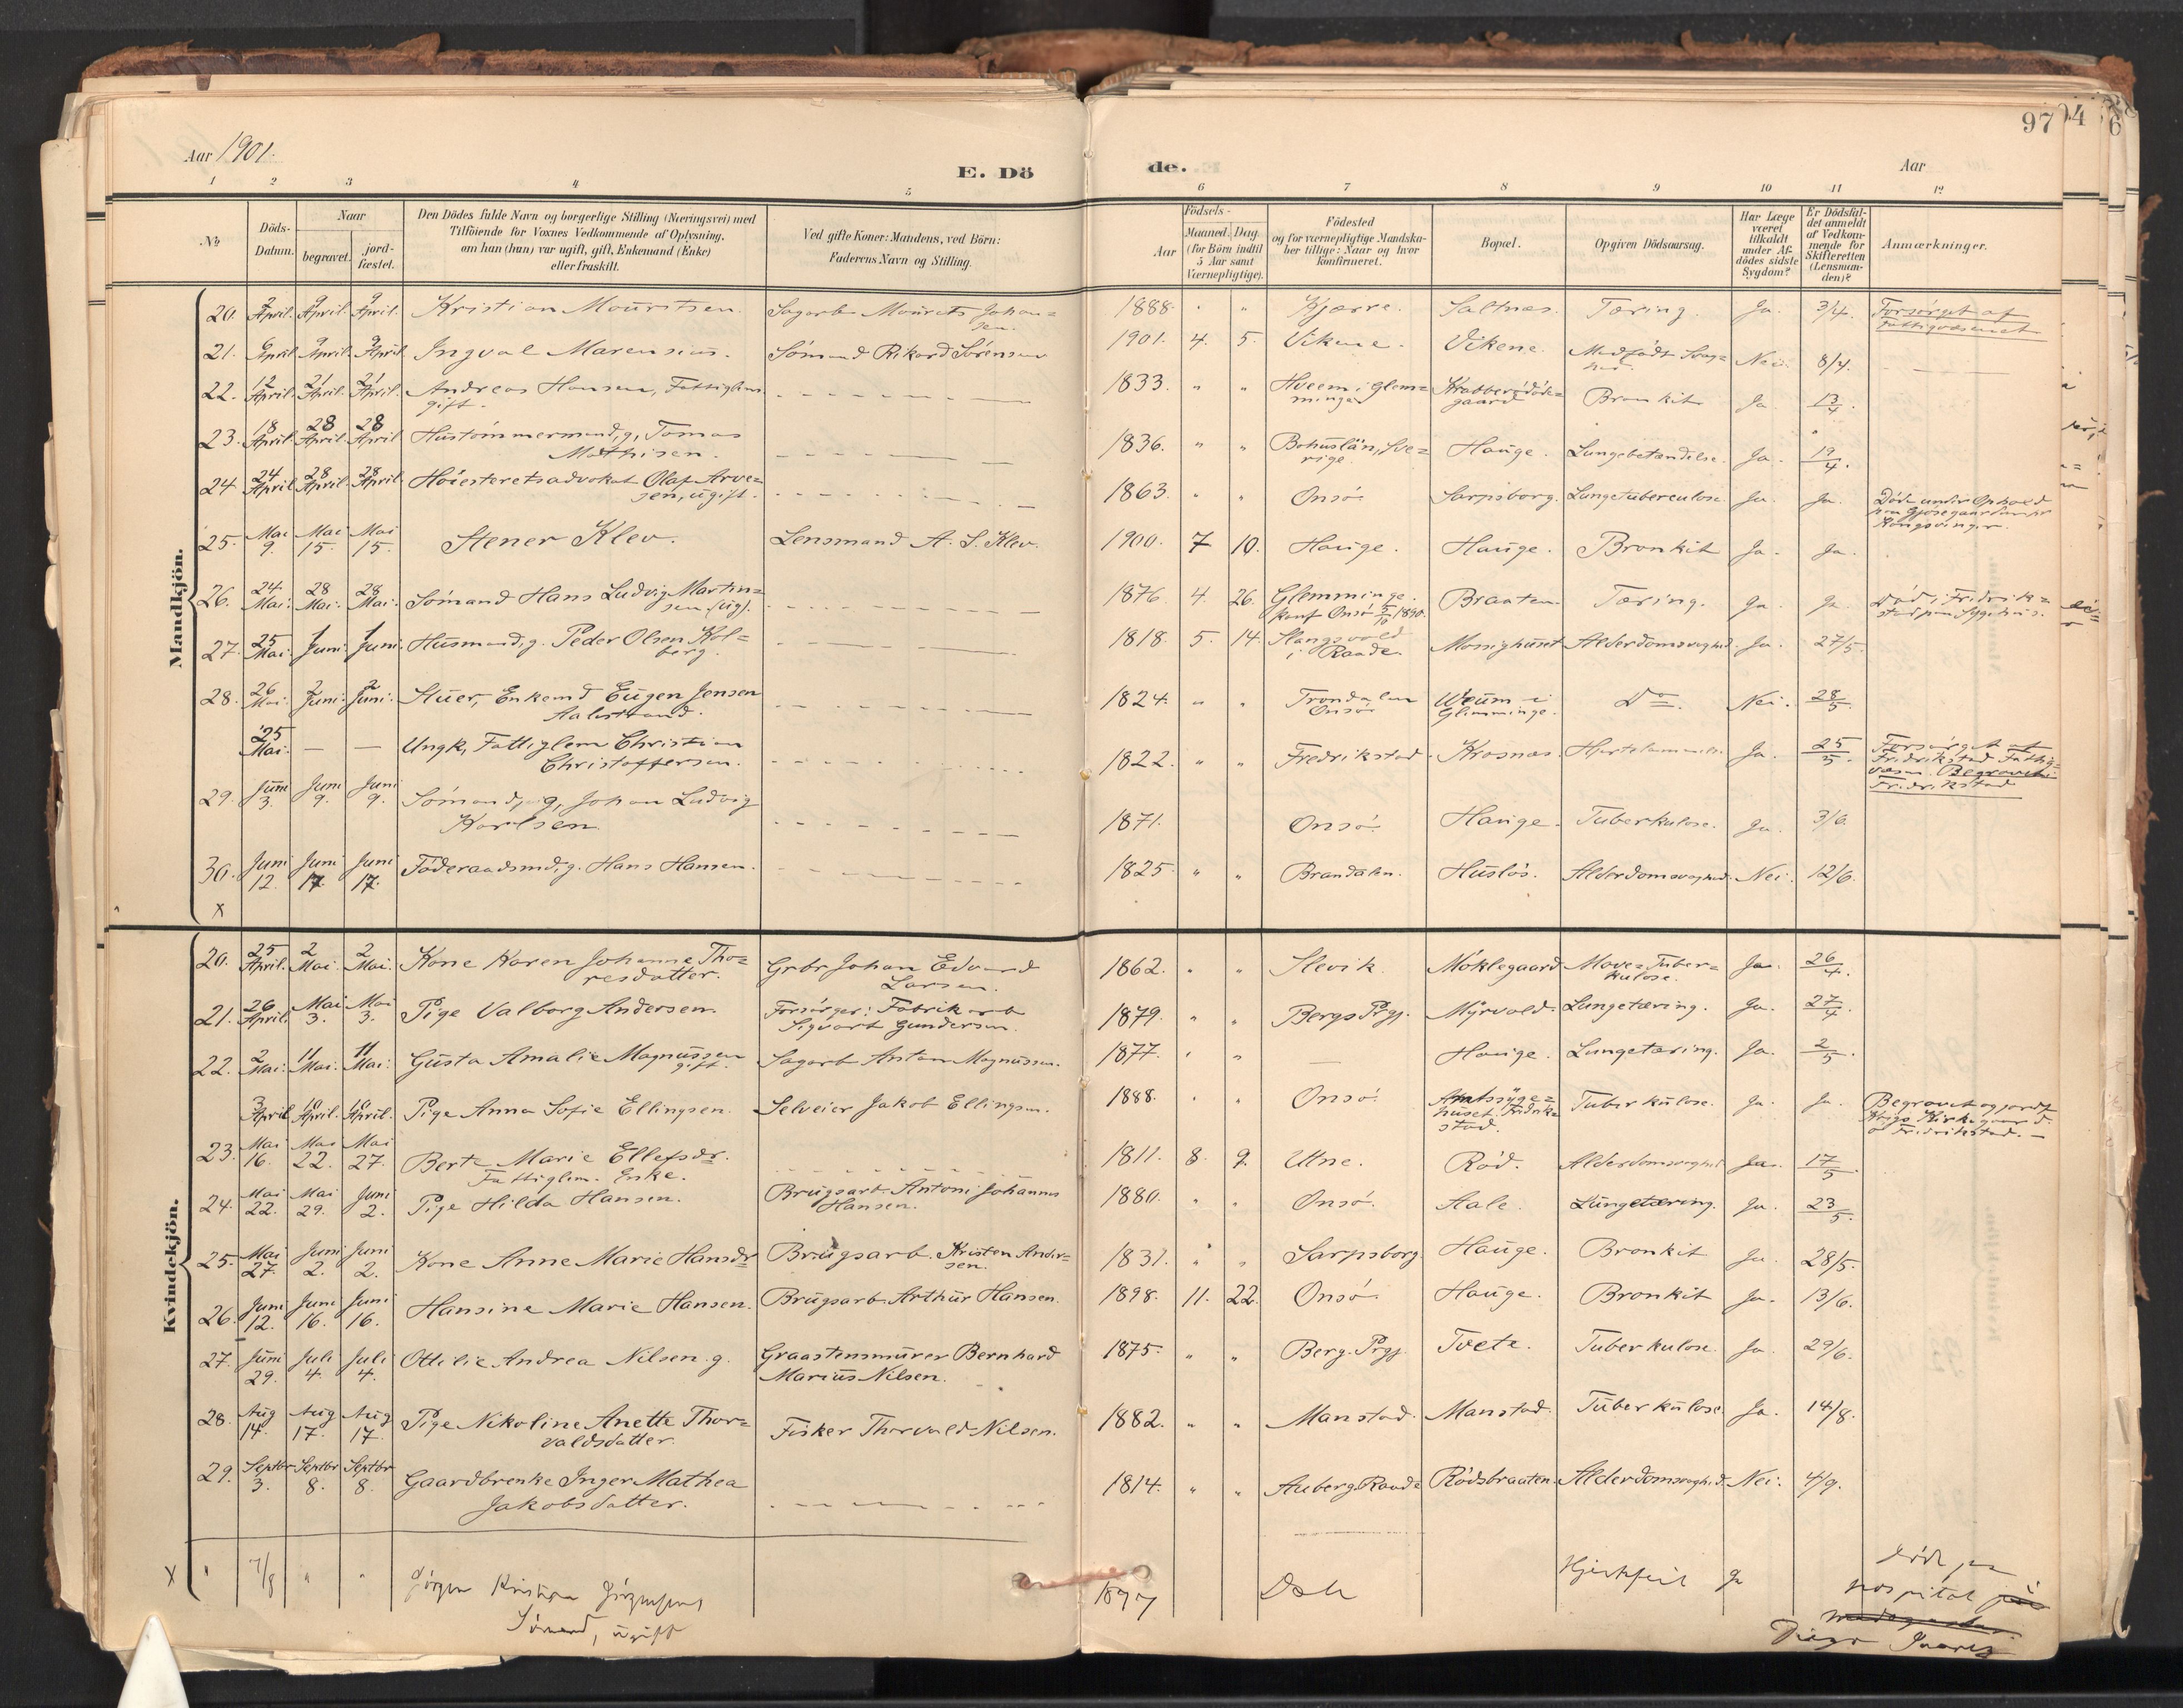 Aar 1901.
E. Dö
de.
Aar
97
1 2 3 4 5 6 7 8 9 10 11 12
No.
Döds-Datum.
Naar
begravet.
jordfæstet.
Den Dödes fulde Navn og borgerlige Stilling (Næringsvei) med
Tilföiende for Voxnes Vedkommende af Oplysning,
om han (hun) var ugift, gift, Enkemand (Enke)
eller fraskilt.
Ved gifte Koner: Mandens, ved Börn:
Faderens Navn og Stilling.
Födsels-
Aar
Maaned. Dag.
(for Börn indtil
5 Aar samt
Værnepligtige).
Födested
og for værnepligtige Mandska-
ber tillige: Naar og hvor
konfirmeret.
Bopæl.
Opgiven Dödsaarsag.
Har Læge
været
tilkaldt
under Af-
dödes sidste
Sygdom?
Er Dödsfal-
det anmeldt
af Vedkom-
mende for
Skifteretten
(Lensman-
den)?
Anmærkninger.
Mandkjön.
20. 2 April. 9 April. 9 April. Kristian Mouritsen. Sagarb. Mourits Johan=
sen. 1888. " " Kjærre. Saltnæs. Tæring. Ja. 3/4. Forsörget af
Fattigvæsenet
21. 6 April 9 April. 9 April. Ingval Marensius. Sömand Rikard Sörensen 1901. 4. 5. Vikene. Vikene. Medfödt Svag=
hed. Nei. 8/4.
22. 12 April. 21 April. 21 April. Andreas Hansen, Fattiglem
gift. 1833. " " Hveem i Glem=
minge gaard Bronkit Ja 13/4.
23. 18 April. 28 April. 28 April. Hustömmermand, g, Tomas
Mathisen. 1836. " " Bohuslän, Sve=
rige. Hauge. Lungebetændelse. Ja. 19/4.
24 24 April 28 April. 28 April. Höiesteretsadvokat Olaf Arve=
sen, ugift. 1863. " " Onsö. Sarpsborg. Lungetuberculose. Ja. Ja. Döde under Ophold
Kongsvinger.
25. Mai 9. Mai 15. Mai 15. Stener Klev. Lensmand A. S. Klev. 1900. 7 10. Hauge. Hauge. Bronkit Ja. Ja.
26. 24 Mai. 28 Mai. 28 Mai. Sömand Hans Ludvig Martin=
sen (ug). 1876 4. 26. Glemminge.
Konf Onsö 5/10 1890. Braaten. Tæring. Ja. Ja. Död i Fredrik=
stad paa Sygehus.
27. 25 Mai. 1 Juni. 1 Juni. Husmand, g. Peder Olsen Kol=
berg. 1818. 5. 14. Slangsvold
i Raade. Monighuset Alderdomsvaghed. Ja. 27/5.
28. 26 Mai. 2 Juni. 2 Juni. Stuer, Enkemd Eugen Jensen
Aalestrand. 1824. " " Trondalen
Onsö Weum i
Glemminge. Do. Nei. 28/5.
25 Mai. — — Ungk, Fattiglem Christian
Christoffersen. 1822. " " Fredrikstad. Krosnæs. Ja. 25/5. Forsörget af
Fredrikstad Fattig=
væsen. Begravet i
Fredrikstad
29. Juni 3. Juni 9. Juni 9. Sömand, g, Johan Ludvig
Karlsen. 1871. Onsö. Hauge. Tuberkulose. Ja. 3/6.
30. Juni 12. Juni 17. Juni 17. Föderaadsmd, g. Hans Hansen. 1825. " " Brandalen. Huslös. Alderdomsvaghed. Nei. 12/6.
X
Kvindekjön.
20. 25 April. 2 Mai. 2 Mai. Kone Karen Johanne Tho=
resdatter. Grbr Johan Edvard
Larsen. 1862. " " Slevik. Möklegaard Mave=Tuber=
kulose. Ja. 26/4.
21. 26 April. Mai 3. Mai 3. Pige Valborg Andersen. Forsörger: Fabrikarb
Sigvart Gundersen. 1879. " " Bergs Prgj. Myrvold. Lungetæring. Ja. 27/4.
22. 2 Mai. 11 Mai. 11 Mai. Gusta Amalie Magnussen
gift. Sagarb Anton Magnussen. 1877. " " — Hauge. Lungetæring. Ja. 2/5.
3 April 10 April. 10 April. Pige Anna Sofie Ellingsen. Selveier Jakob Ellingsen. 1888. " " Onsö. Amtssyge=
huset Fredrik=
stad. Tuberkulose. Ja. Ja. Begravet og jordf.
Kirkegaard
Fredrikstad.
23. Mai 16. Mai 22. Mai 27. Berte Marie Ellefsdr.
Fattiglem. Enke. 1811. 8. 9. Utne. Röd. Alderdomsvaghed. Ja. 17/5.
24. Mai 22. Mai 29. Juni 2. Pige Hilda Hansen. Brugsarb. Antoni Johannes
Hansen. 1880. " " Onsö. Aale. Lungetæring. Ja. 23/5.
25. Mai 27. Juni 2. Juni 2. Kone Anne Marie Hansdr Brugsarb. Kristen Ander=
sen. 1831. " " Sarpsborg. Hauge. Bronkit Ja. 28/5.
26. Juni 12. Juni 16. Juni 16. Hansine Marie Hansen. Brugsarb. Arthur Hansen. 1898. 11. 22. Onsö. Hauge. Bronkit Ja. 13/6.
27. Juni 29. Juli 4. Juli 4. Ottilie Andrea Nilsen. g. Graastensmurer Bernhard
Marius Nilsen. 1875. " " Berg. Prgj. Tvete. Tuberkulose. Ja. 29/6.
28. Aug 14. Aug 17. Aug 17. Pige Nikoline Anette Thor=
valdsdatter. Fisker Thorvald Nilsen. 1882. " " Manstad. Manstad. Tuberkulose. Ja. 14/8.
29. Septbr 3. Septbr 8. Septbr 8. Gaardbrenke Inger Mathea
Jakobsdatter. 1814. " " Auberg. Raade Rödsbraaten. Alderdomsvaghed. Nei. 4/9.
X " 7/8 " " Jörgen Kristian Jörgensen
Sömand, ugift 1877 Dale Hjertefeil Ja döde paa
hospital paa
Diego Suarez